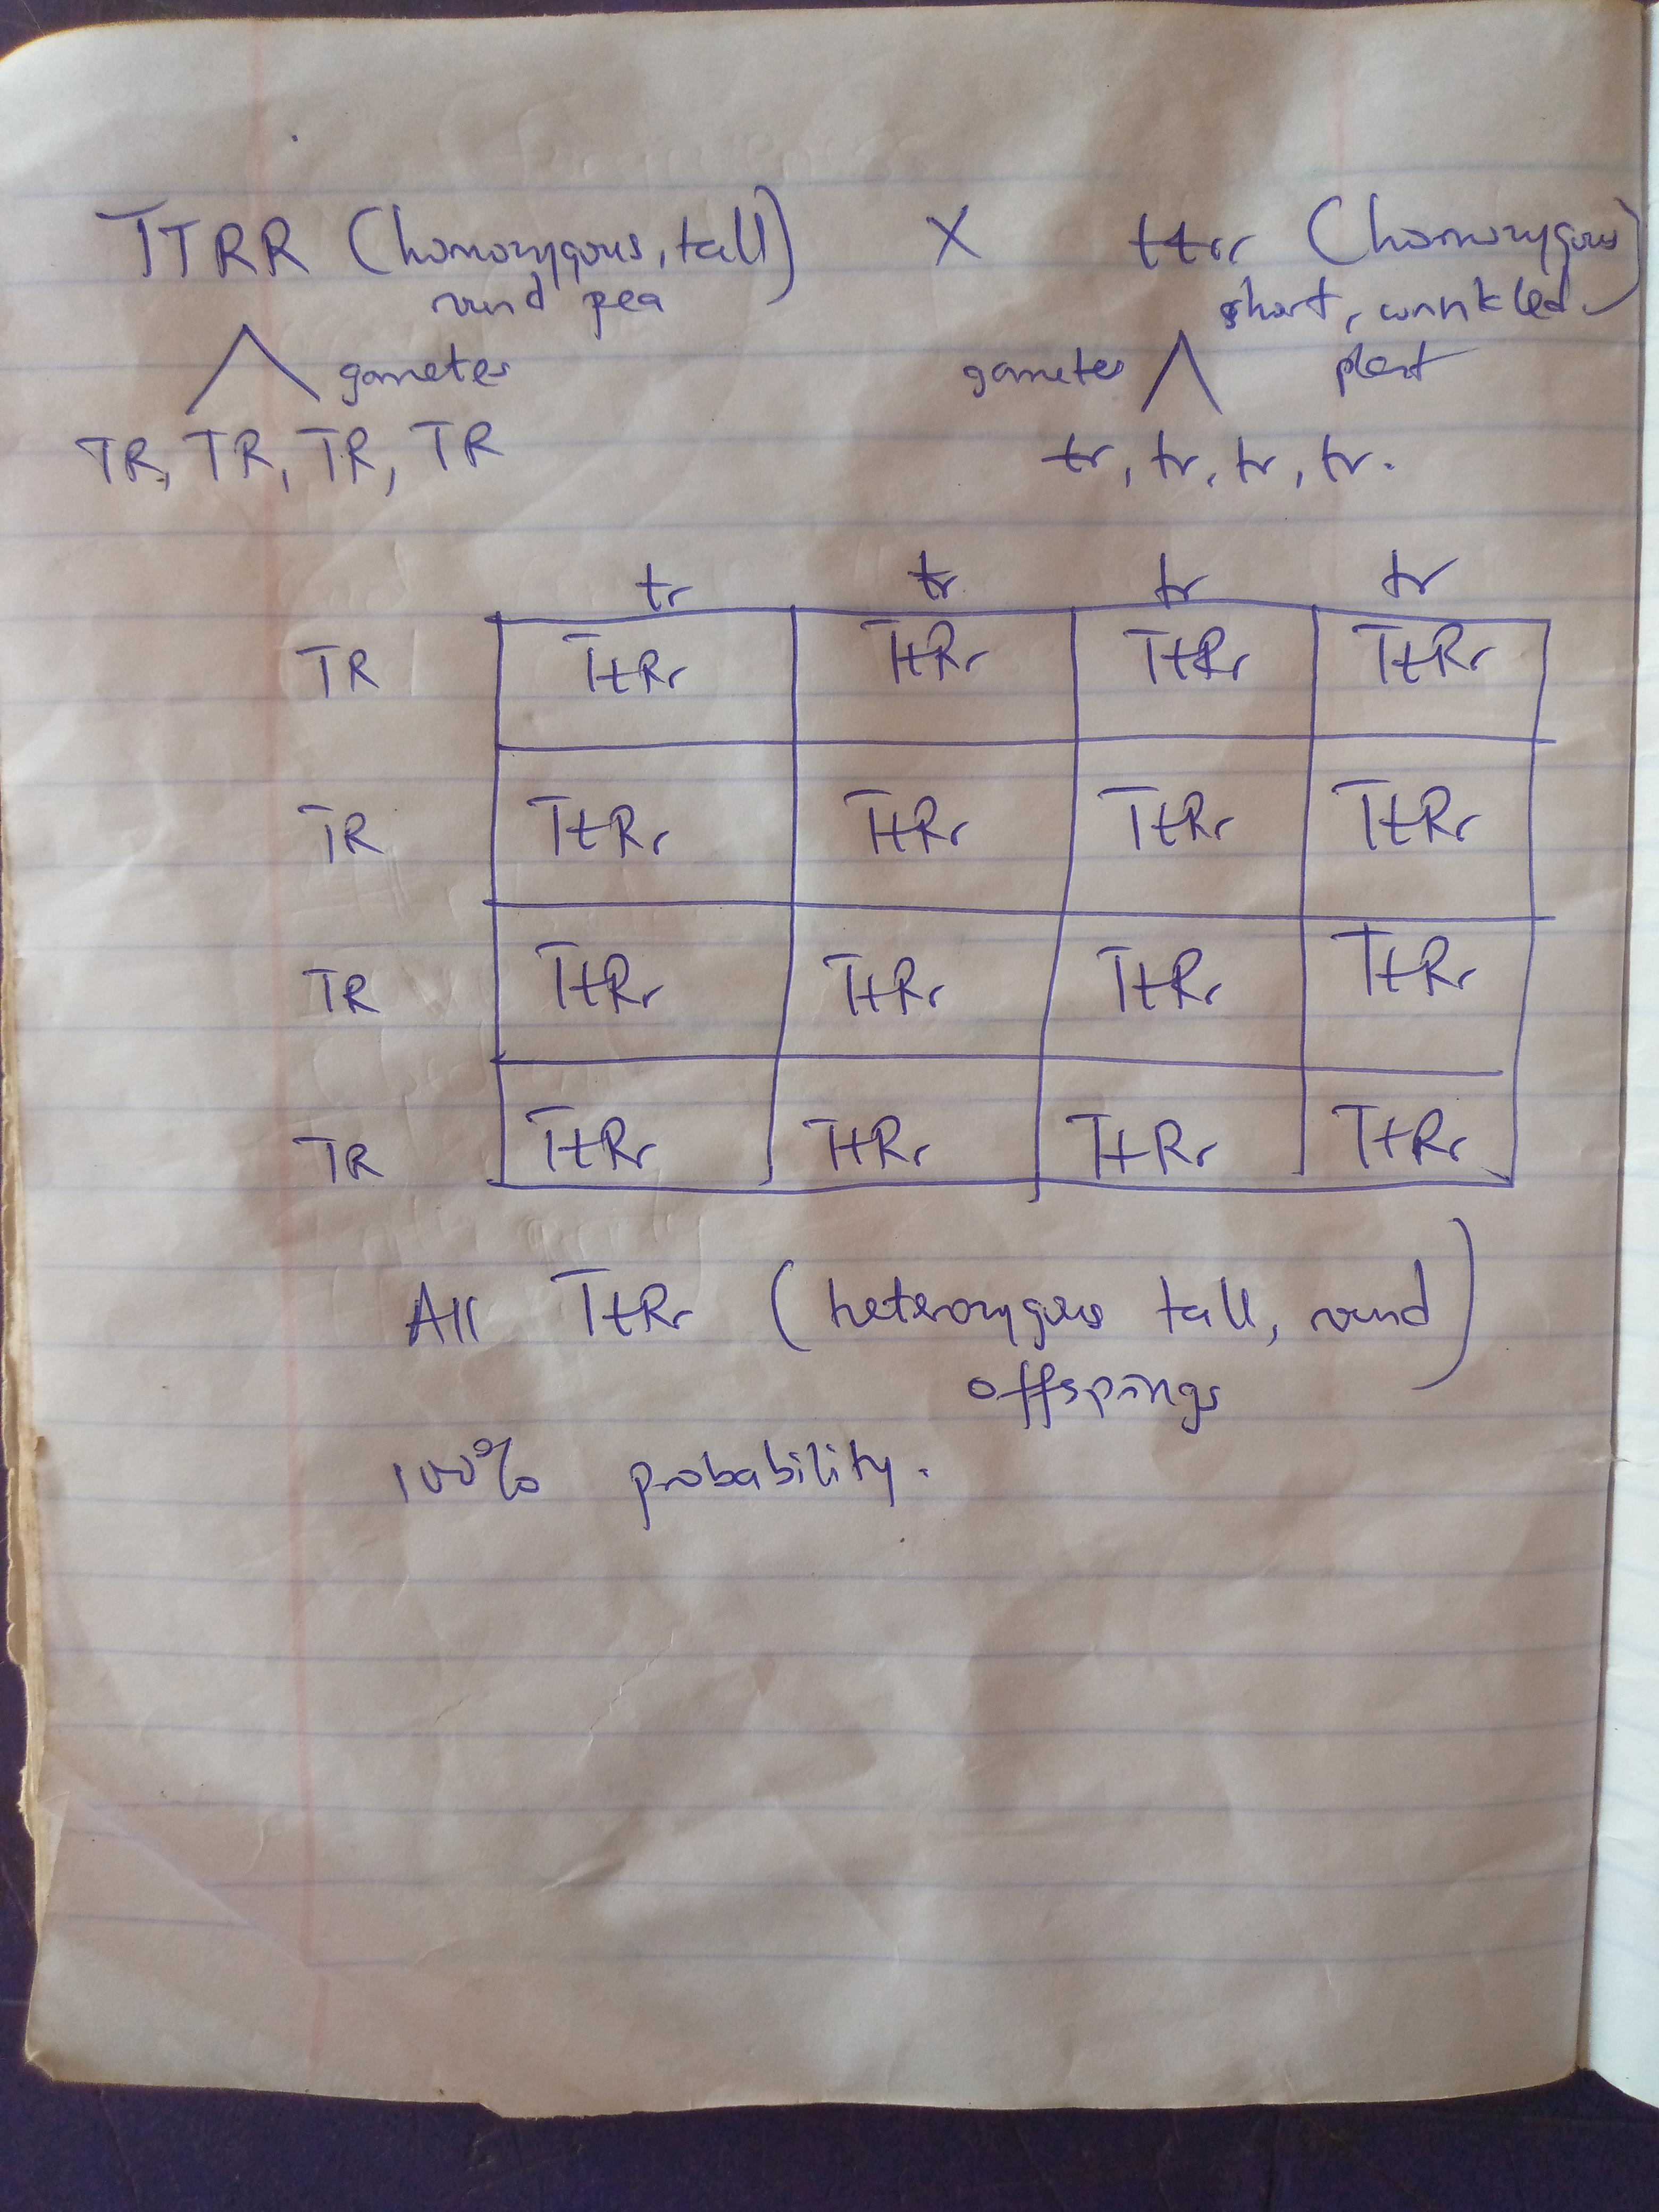 TTRR (homozygous, tall) X ttrr (homozygous)
round pea short, wrinkled
gametes gametes plant
TR, TR, TR, TR tr, tr, tr, tr.
tr tr tr tr
TR TtRr TtRr TtRr TtRr
TR TtRr TtRr TtRr TtRr
TR TtRr TtRr TtRr TtRr
TR TtRr TtRr TtRr TtRr
All TtRr (heterozygous tall, round)
offsprings
100% probability.